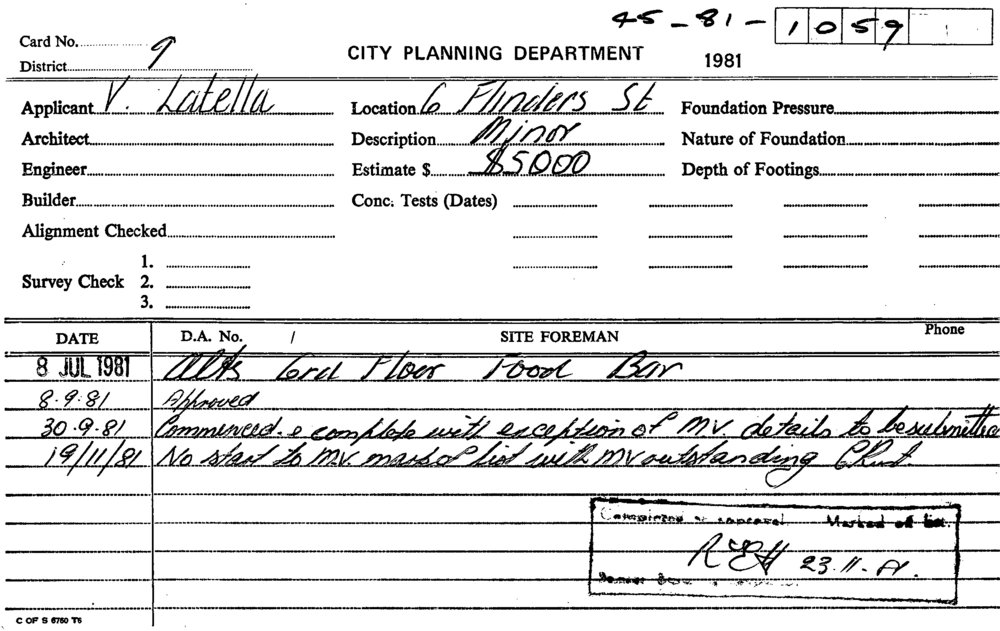 45-81-1059
Card No.
9
District
CITY PLANNING DEPARTMENT 1981
Applicant V. Latella Location 6 Flinders St Foundation Pressure
Architect Description Minor Nature of Foundation
Engineer Estimate $ $5000 Depth of Footings
Builder Conc. Tests (Dates)
Alignment Checked
1.
Survey Check 2.
3.
DATE D.A. No. / SITE FOREMAN Phone
8 JUL 1981 Alts Grd Floor Food Bar
8.9.81 Approved
30.9.81 Commenced & complete with exception of M.V. details to be submitted
19/11/81 No start to M.V. mark of list with MV outstanding
Completed approval Marked off list.
23.11.81.
C OF S 6760 T6